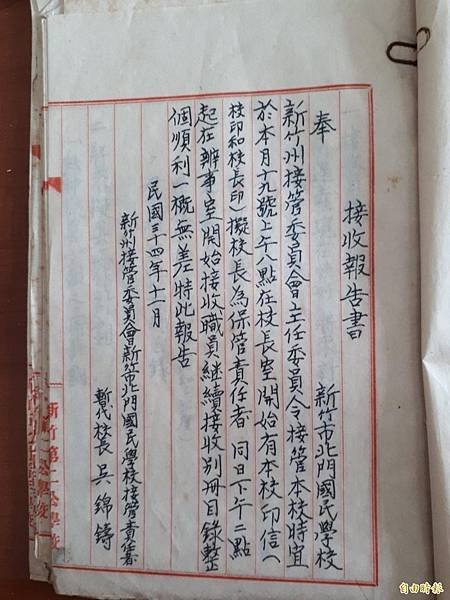 接收報告書
新竹市北門國民學校
奉
新竹州接管委員會主任委員令接管本校時宜
於本月十九號上午八點在校長室開始有本校印信(
校印和校長印)擬校長為保管責任者 同日下午二點
起在辦事室開始接收職員繼續接收別冊目錄整
個順利一概無差特此報告
民國三十四年十一月
新竹州接管委員會新竹市北門國民學校接管責任者
暫代校長 吳錦鑄
新竹第一公學校
自由時報